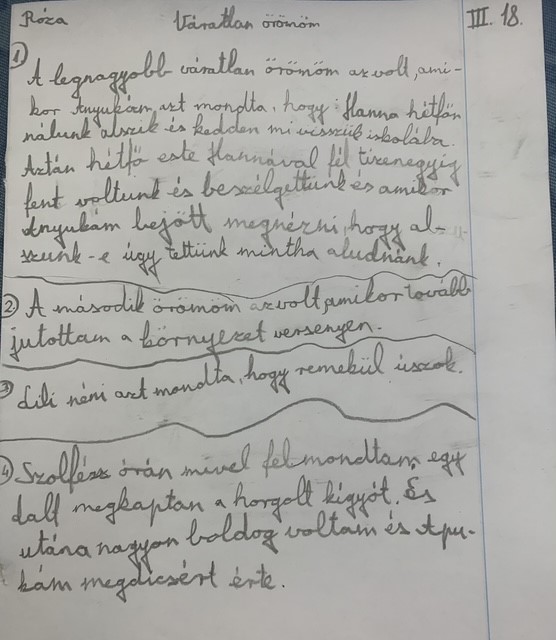 Róza Váratlan örömöm III. 18.
1) A legnagyobb váratlan örömöm az volt, ami-
kor Anyukám azt mondta, hogy Hanna hétfőn
nálunk alszik és kedden mi visszük iskolába.
Aztán hétfő este Hannával fél tizenegyig
fent voltunk és beszélgettünk és amikor
Anyukám bejött megnézni, hogy al-
szunk-e úgy tettünk mintha aludnánk.
2) A második örömöm az volt, amikor tovább
jutottam a környezet versenyen.
3) Lili néni azt mondta, hogy remekül úszok.
4) Szolfézs órán mivel felmondtam egy
dalt megkaptan a horgolt kígyót. És
utána nagyon boldog voltam és Apu-
kám megdicsért érte.